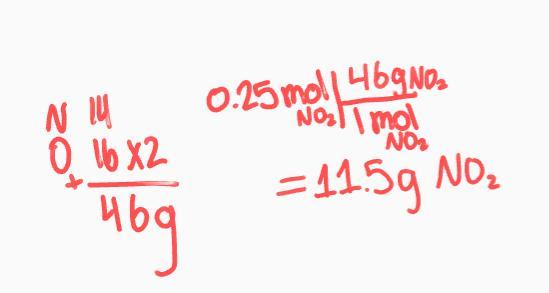 N 14
O 16 x2
+
46g
0.25 mol NO₂ | 46g NO₂
1 mol NO₂
= 11.5g NO₂